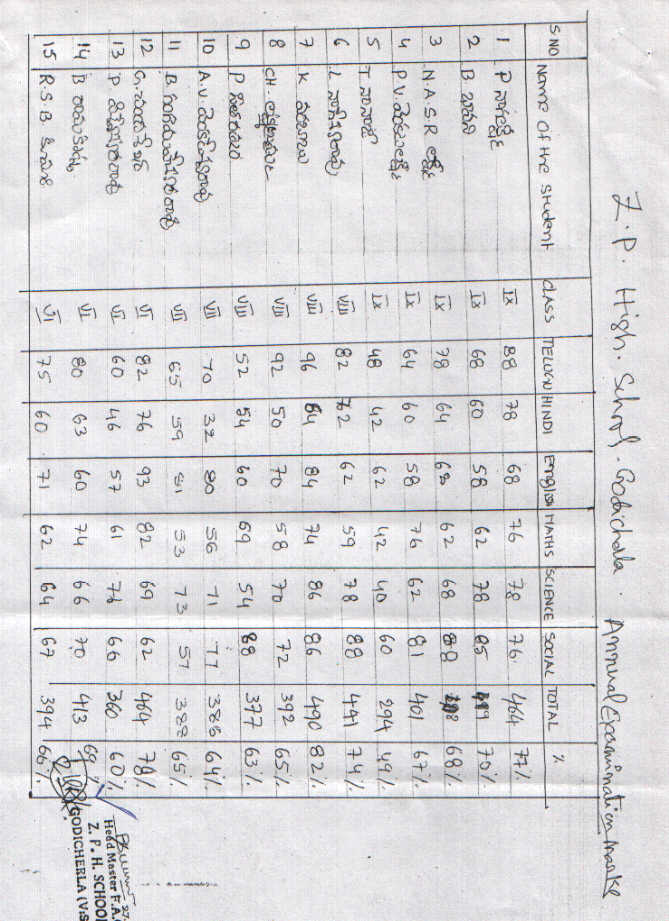 Z. P. High. School. Godichala. Annual Examination Marks
S NO Name of the Student CLASS TELUGU HINDI English MATHS SCIENCE SOCIAL TOTAL %
1 P IX 88 78 68 76 78 76 464 77%
2 B భవాని IX 68 60 58 62 78 70%
3 N.A.S.R లక్ష్మి IX 78 64 68 62 68 68%
4 P.V. IX 64 60 58 76 62 81 401 67%
5 T నానాజీ IX 48 42 62 42 40 60 294 49%
6 L VIII 82 72 62 59 78 88 441 74%
7 K VIII 96 84 84 74 86 86 490 82%
8 CH. VIII 92 50 70 58 70 72 392 65%
9 P VIII 52 54 60 69 54 88 377 63%
10 A.V. VII 70 32 80 56 71 77 386 64%
11 B VII 65 59 81 53 73 57 388 65%
12 G. VI 82 76 93 82 69 62 464 78%
13 P VI 60 46 57 61 66 360 60%
14 B VI 80 63 60 74 66 70 413 69%
15 R.S.B VI 75 60 71 62 64 67 394 66%
Head Master F.A.
Z. P. H. SCHOOL
GODICHERLA (VIS